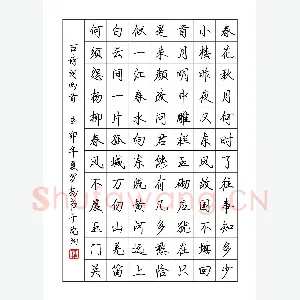 春花秋月何时了往事知多少
小楼昨夜又东风故国不堪回
首月明中雕栏玉砌应犹在只
是朱颜改问君能有几多愁恰
似一江春水向东流黄河远上
白云间一片孤城万仞山羌笛
何须怨杨柳春风不度玉门关
古诗词两首